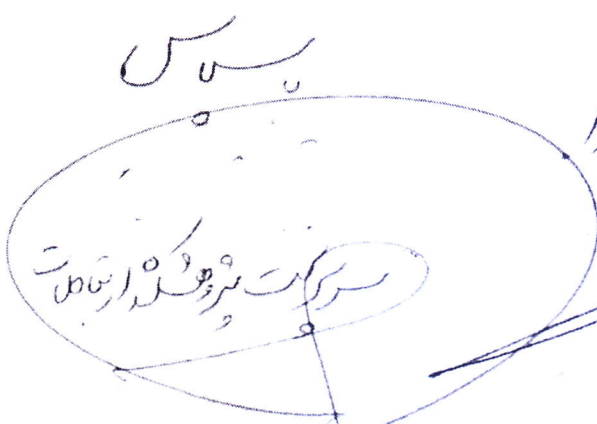 سپاس
سرپرست پژوهشکده ارتباطات